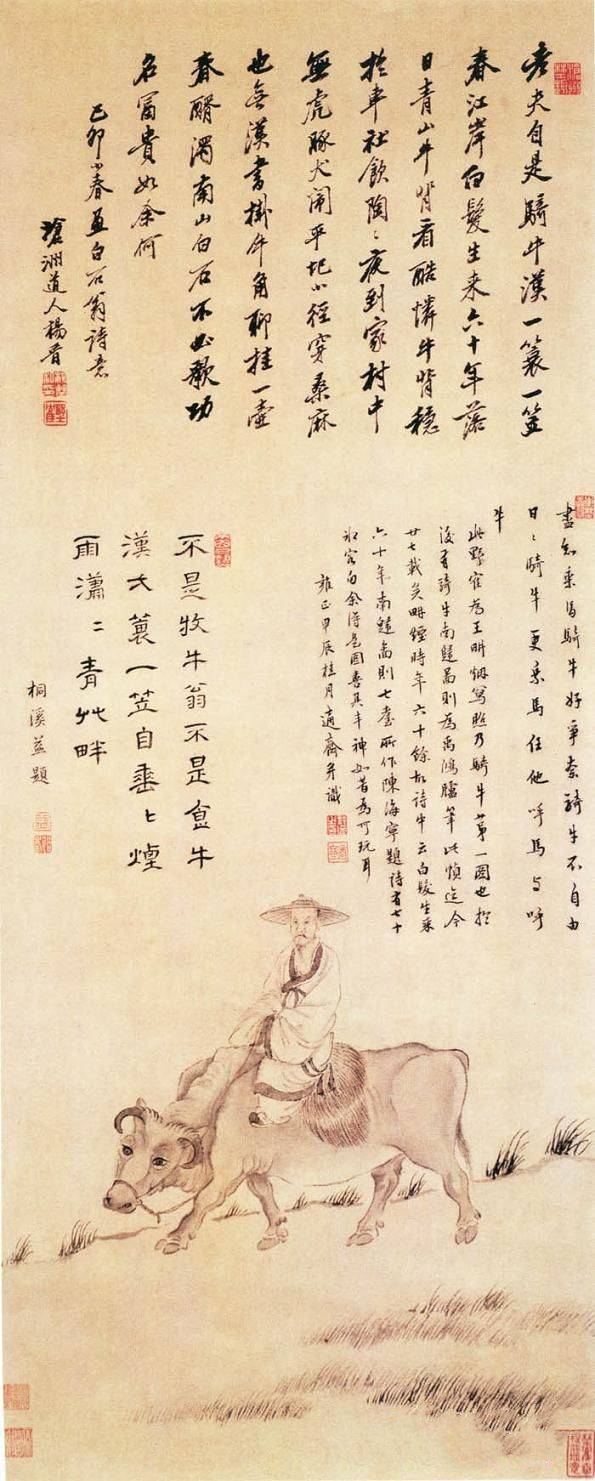 老夫自是騎牛漢一簑一笠
春江岸白髮生来六十年落
日青山牛背看酷憐牛背穩
於車社飲陶々夜到家村中
無虎豚犬鬧平圯小徑穿桑麻
也無漢書掛牛角聊挂一壺
春醑濁南山白石不必歌功
名富貴如余何
己卯小春画白石翁詩意
道人楊晉
盡知乘馬騎牛好爭奈騎牛不自由
日々騎牛更乘馬任他呼馬与呼
牛
此野崔為王畊烟寫照乃騎牛第一圖也於
後有騎牛南還圖則為禹鴻臚筆此幀迄今
廿七載矣畊煙時年六十餘故詩中云白髮生来
六十年南還圖則七所作陳海寧題詩有七十
句余得是圖喜其丰神如昔為可玩耳
雍正甲辰桂月適齋弁識
不是牧牛翁不是飯牛
漢大簑一笠自垂々煙
雨瀟々青艸畔
桐溪益題